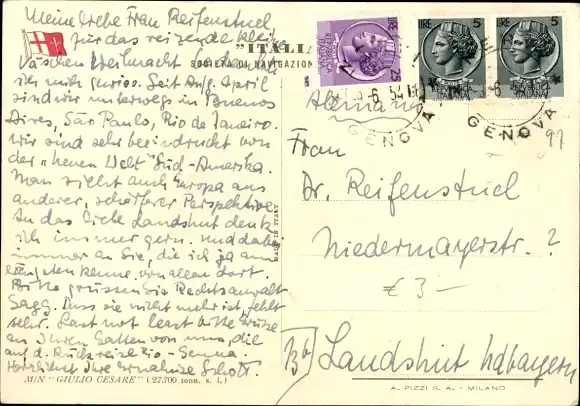 Meine liebe Frau Reifenstuel
für das reizende kleine
"ITALIA"
SOCIETÀ DI NAVIGAZIONE
Väschen Weihnacht
ich mich
Seit Anfg. April
sind wir unterwegs in Buenos
Aires, São Paulo, Rio de Janeiro.
Wir sind sehr beeindruckt von
der "neuen Welt" Süd-Amerika.
Man sieht auch Europa aus
anderer, schärferer Perspektive
An das liebe Landshut denk
ich immer gern. und dabei
immer an Sie, die ich ja am
längsten kenne von allen dort.
Bitte grüssen Sie Rechtsanwalt
Dass sie nicht mehr ist, fehlt
sehr. Last not least bitte Grüsse
an Ihren Gatten von uns, die
auf d. Rückreise Rio - Genua
Herzlichst Ihre Schott.
M/N "GIULIO CESARE" (27.700 tonn. s. l.)
MADE IN ITALY
LIRE 25
LIRE 5
LIRE 5
6 54
GENOVA
GENOVA
97
Frau
Dr. Reifenstuel
Niedermayerstr. ?
€ 3-
Landshut Ndbayern
A. PIZZI S. A. - MILANO